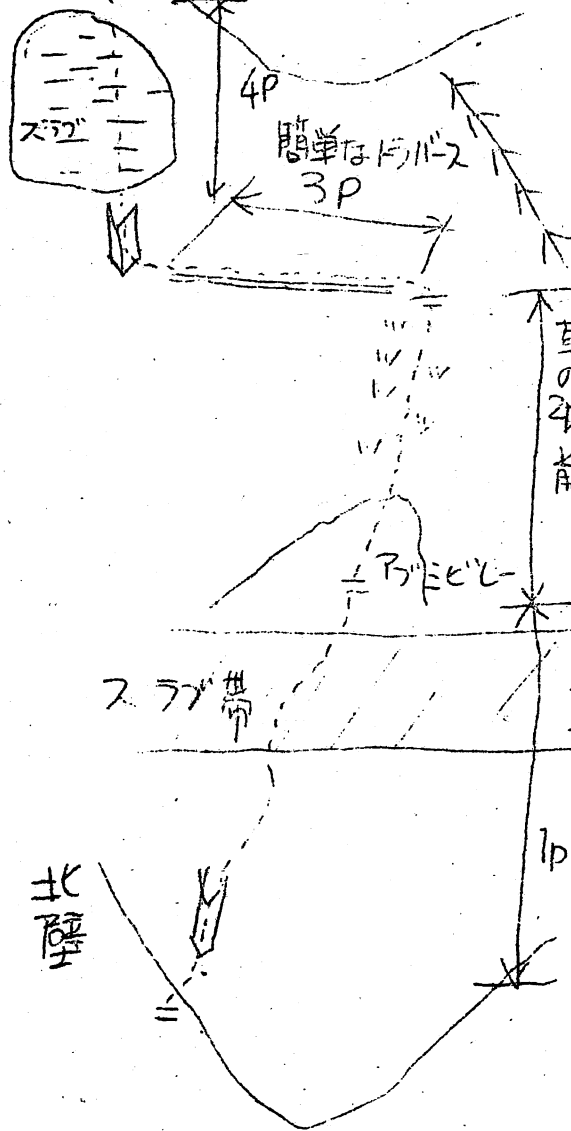 4P
スラブ
簡単なトラバース
3P
アブミビレー
スラブ帯
1P
北壁